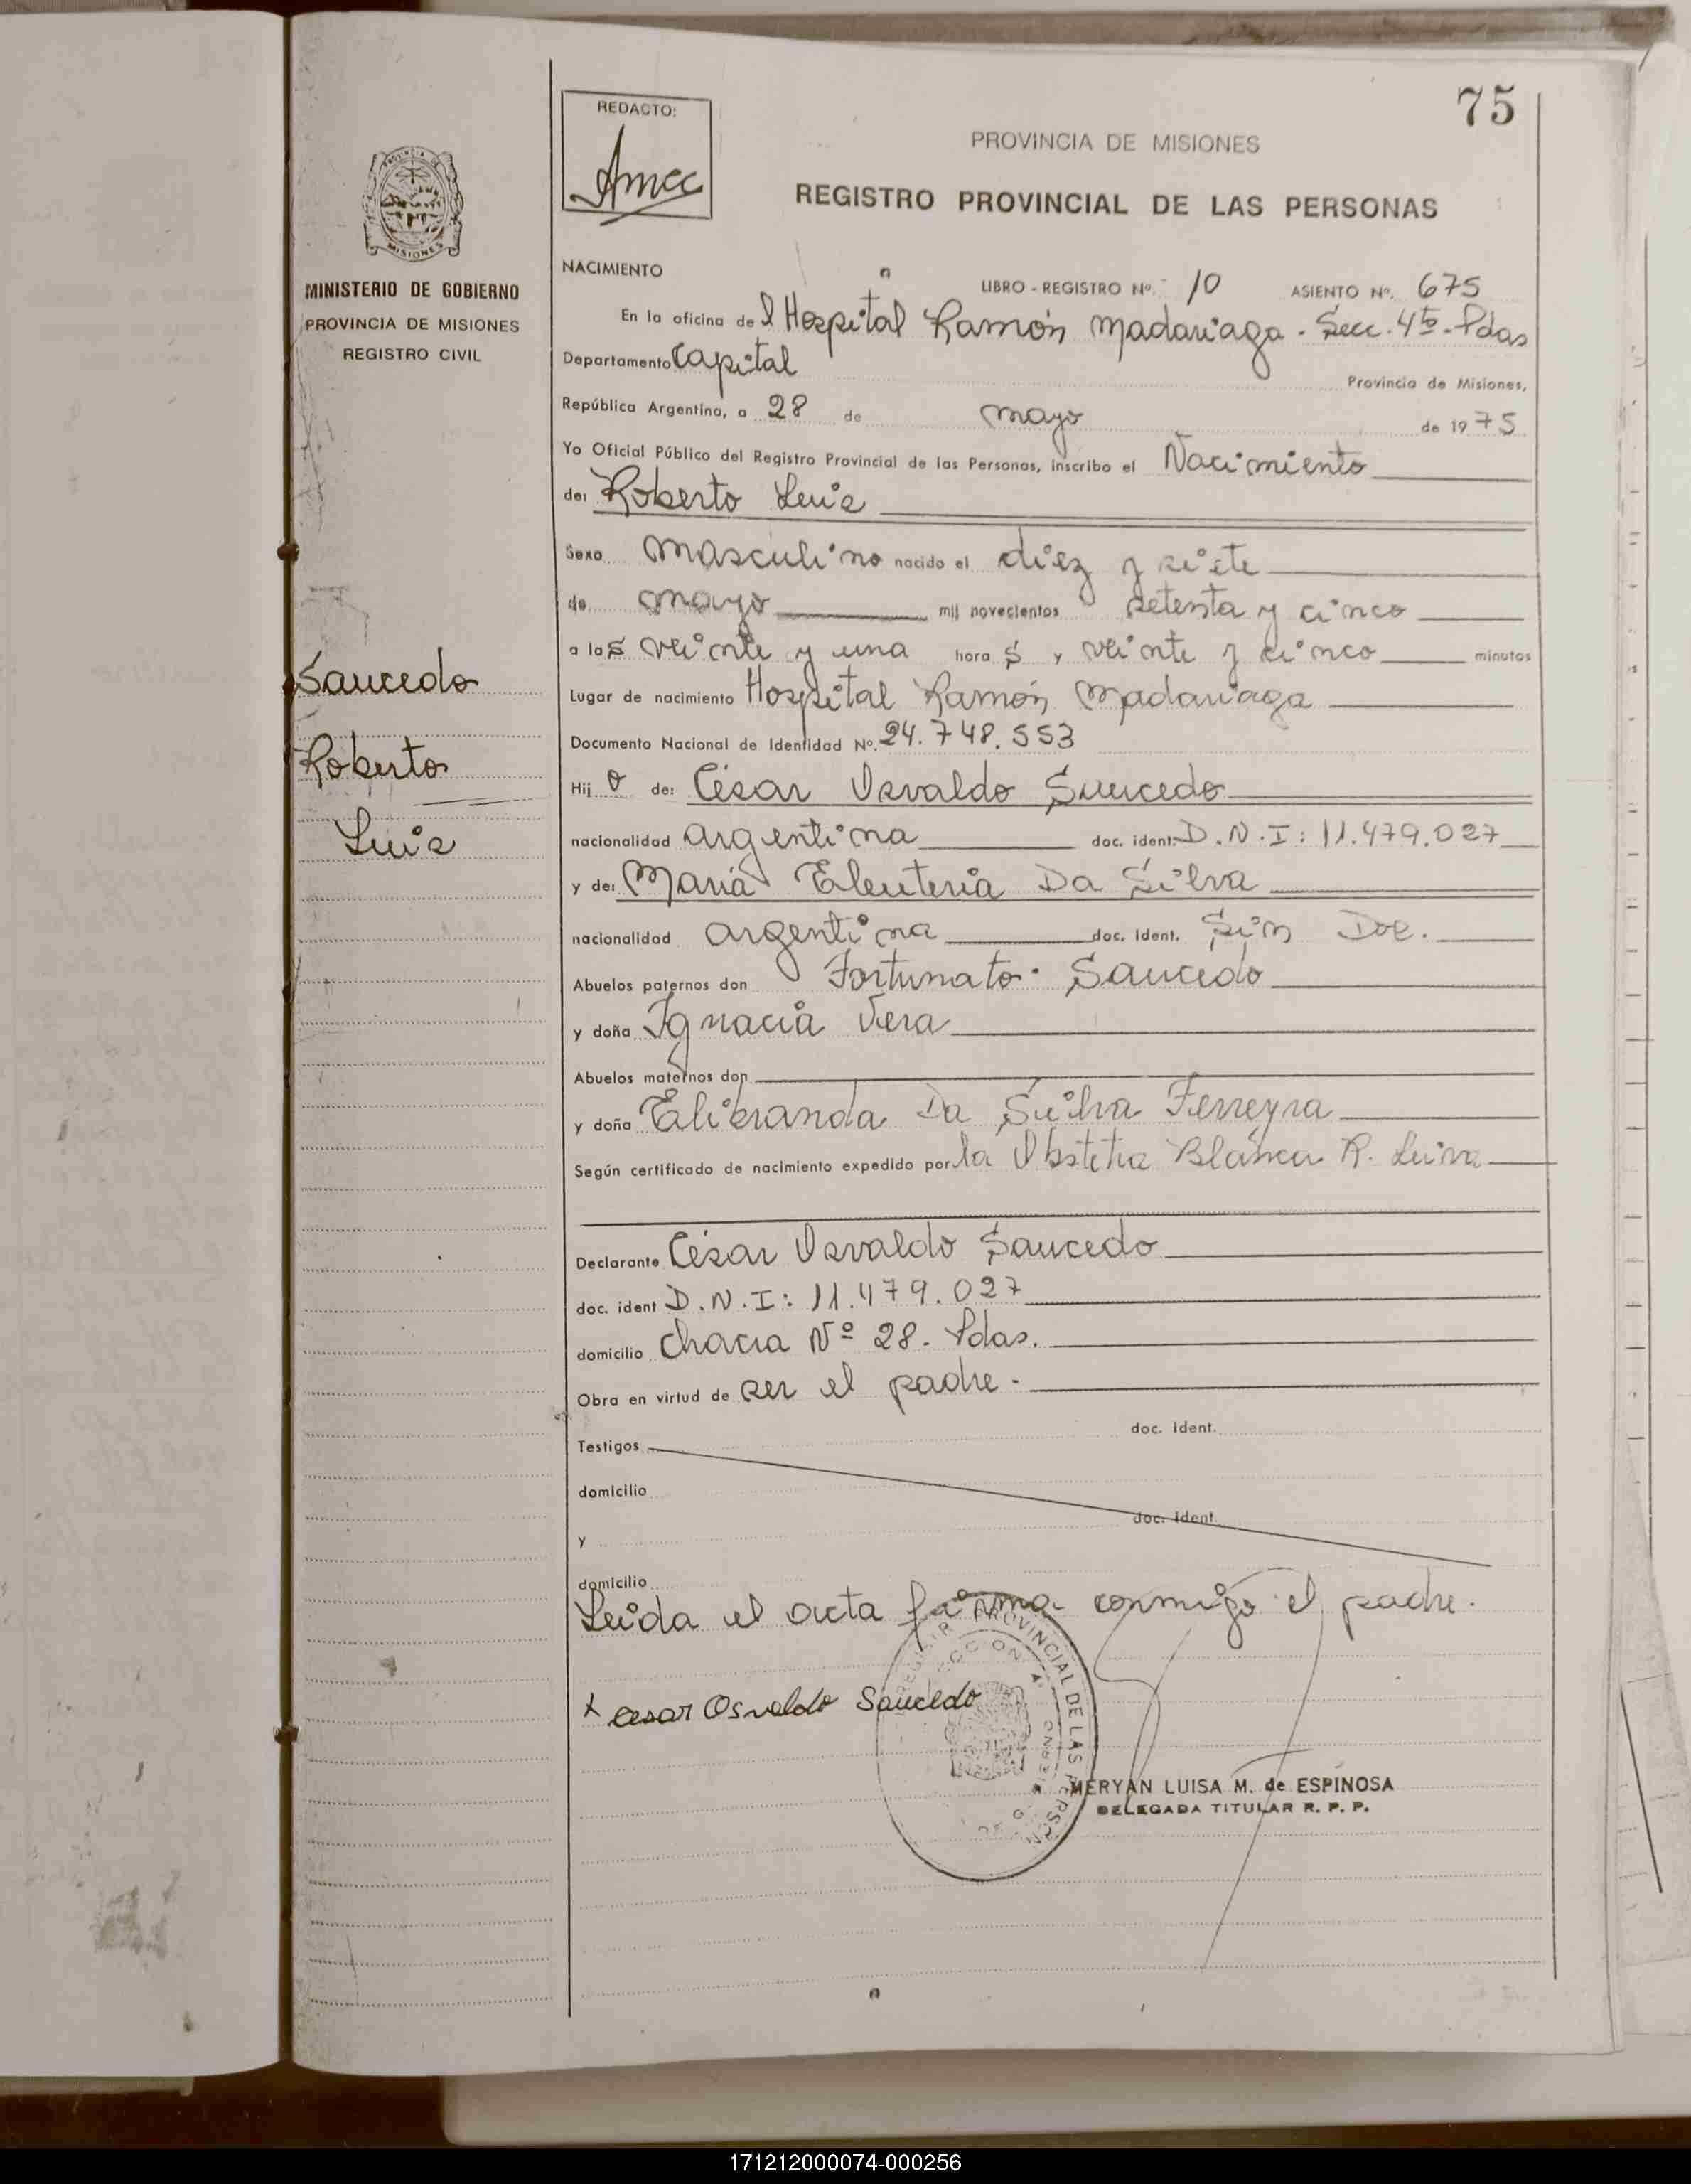 75
REDACTO:
PROVINCIA DE MISIONES
REGISTRO PROVINCIAL DE LAS PERSONAS
MISIONES
MINISTERIO DE GOBIERNO
PROVINCIA DE MISIONES
REGISTRO CIVIL
NACIMIENTO
LIBRO - REGISTRO Nº. 10 ASIENTO Nº. 675
En la oficina del Hospital Ramón Madariaga - Secc. 4ta - Pdas
Departamento Capital Provincia de Misiones,
República Argentina, a 28 de mayo de 1975
Yo Oficial Público del Registro Provincial de las Personas, inscribo el Nacimiento
de: Roberto Luis
Sexo masculino nacido el diez y siete
de mayo mil novecientos setenta y cinco
a las veinte y una horas y veinte y cinco minutos
Lugar de nacimiento Hospital Ramón Madariaga
Documento Nacional de Identidad Nº. 24.748.553
Hijo de: César Osvaldo Saucedo
nacionalidad argentina doc. ident. D.N.I: 11.479.027
y de: María Eleuteria Da Silva
nacionalidad argentina doc. ident. Sin Doc.
Abuelos paternos don Fortunato Saucedo
y doña Ignacia Vera
Abuelos maternos don
y doña Elibranda Da Silva Ferreyra
Según certificado de nacimiento expedido por la Obstetra Blanca R. Leiva
Declarante César Osvaldo Saucedo
doc. ident D.N.I: 11.479.027
domicilio Chacra Nº 28 - Pdas.
Obra en virtud de ser el padre.
doc. ident.
Testigos
domicilio
doc. ident.
y
domicilio
Leida el acta firma conmigo el padre.
x Cesar Osvaldo Saucedo
MERYAN LUISA M. de ESPINOSA
DELEGADA TITULAR R. P. P.
Saucedo
Roberto
Luis
PROVINCIAL DE LAS
171212000074-000256